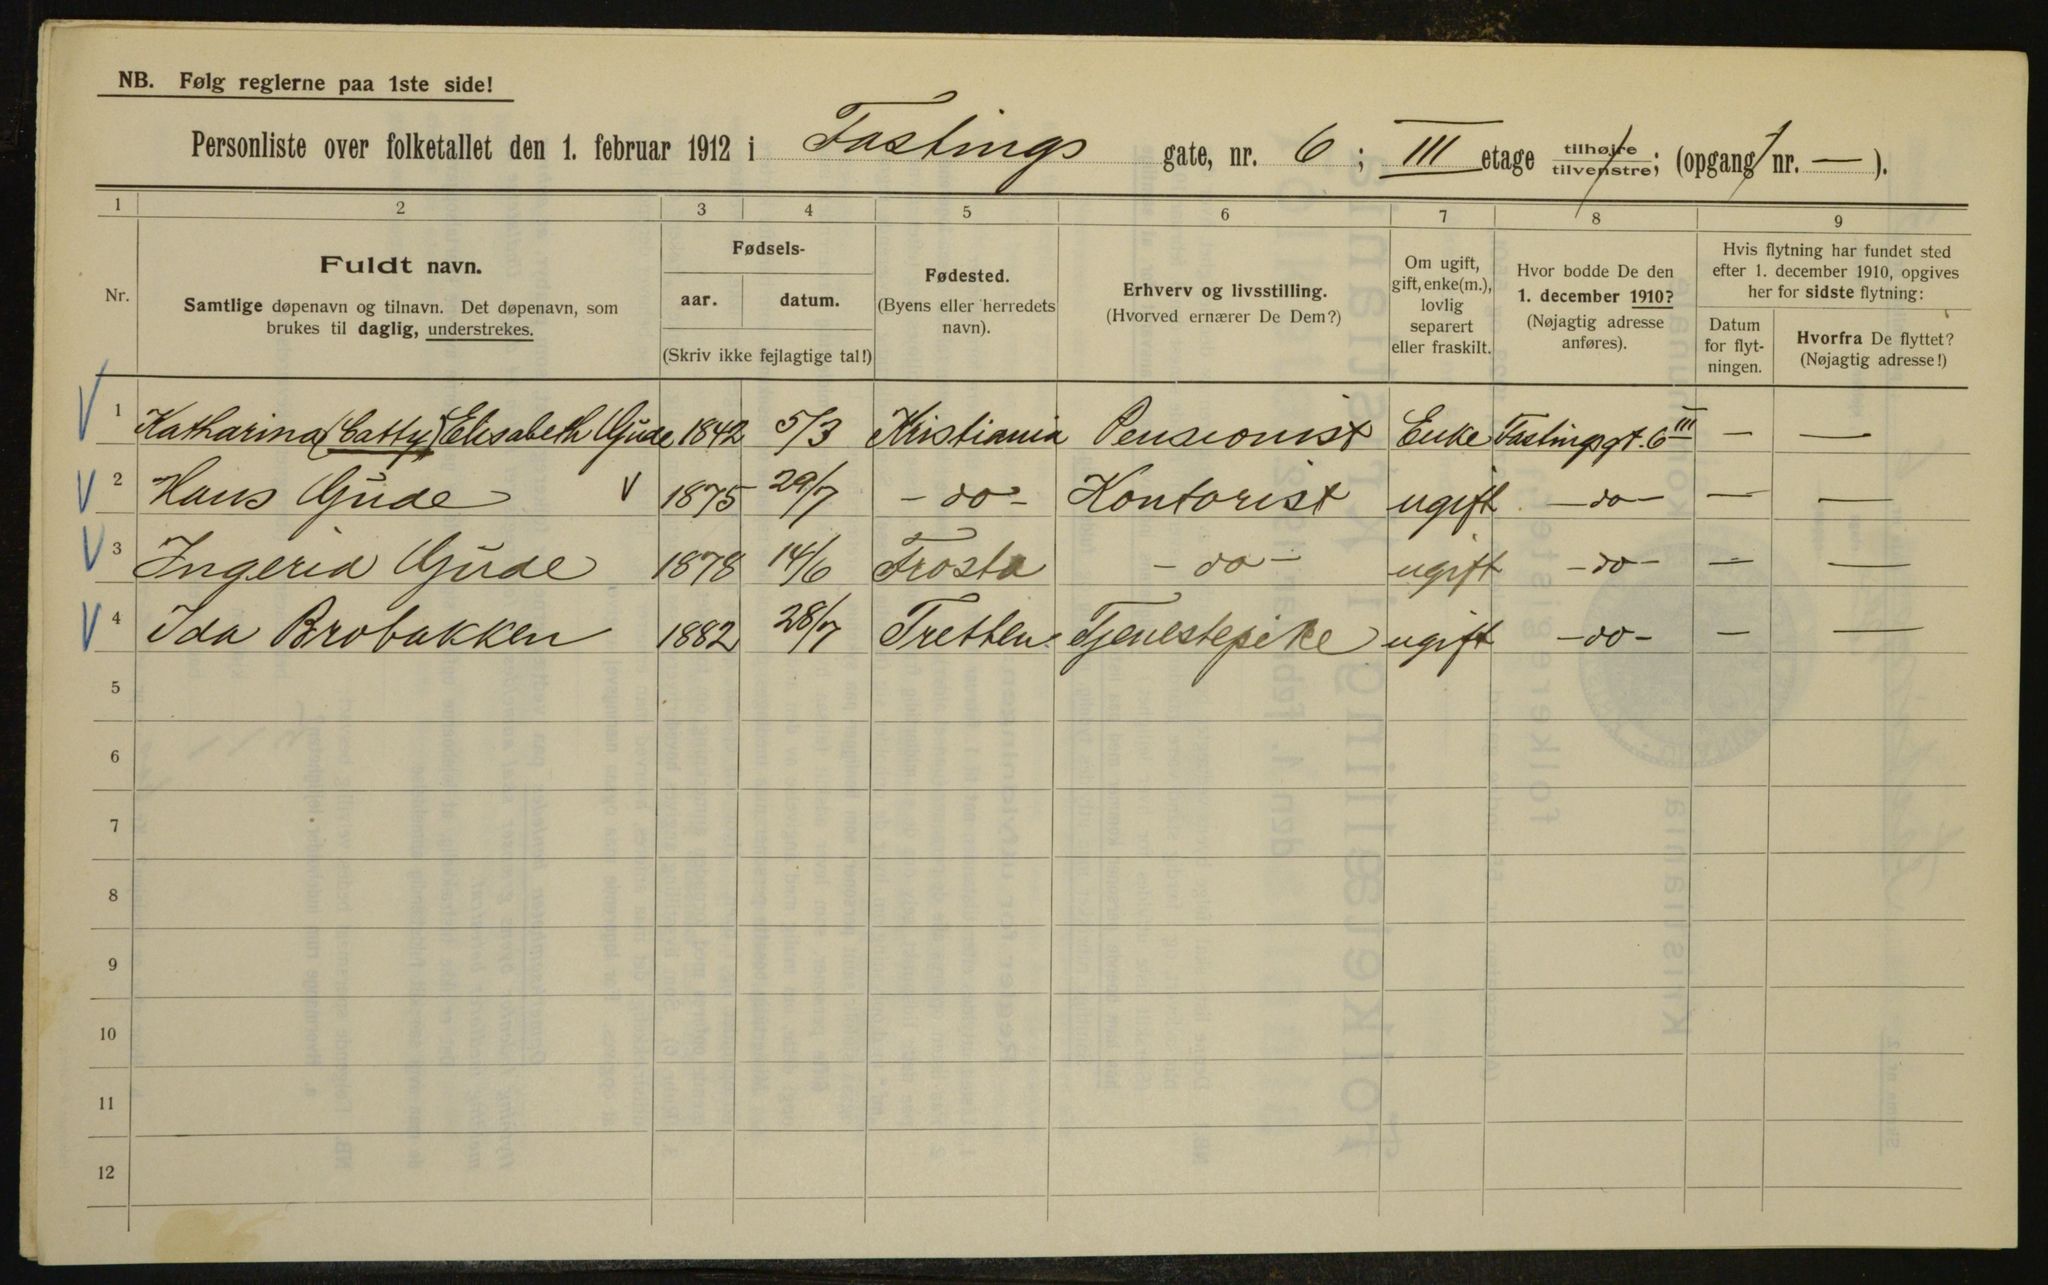 NB. Følg reglerne paa 1ste side!
Personliste over folketallet den 1. februar 1912 i Fastings gate, nr. 6 ; III etage tilhøire/tilvenstre; (opgang nr. — ).
1 2 3 4 5 6 7 8 9
Nr.
Fuldt navn.
Samtlige døpenavn og tilnavn. Det døpenavn, som
brukes til daglig, understrekes.
Fødsels-
aar. datum.
(Skriv ikke fejlagtige tal!)
Fødested.
(Byens eller herredets
navn).
Erhverv og livsstilling.
(Hvorved ernærer De Dem?)
Om ugift,
gift, enke(m.),
lovlig
separert
eller fraskilt.
Hvor bodde De den
1. december 1910?
(Nøjagtig adresse
anføres).
Hvis flytning har fundet sted
efter 1. december 1910, opgives
her for sidste flytning:
Datum
for flyt-
ningen.
Hvorfra De flyttet?
(Nøjagtig adresse!)
1 Katharina (Catty) Elisabeth Gude 1842 5/3 Kristiania Pensionist Enke Fastingsgt. 6 III — —
2 Hans Gude V 1875 29/7 — do — Kontorist ugift — do — — —
3 Ingerid Gude 1878 14/6 Frosta — do — ugift — do — — —
4 Ida Brobakken 1882 28/7 Tretten Tjenestepike ugift — do — — —
5
6
7
8
9
10
11
12